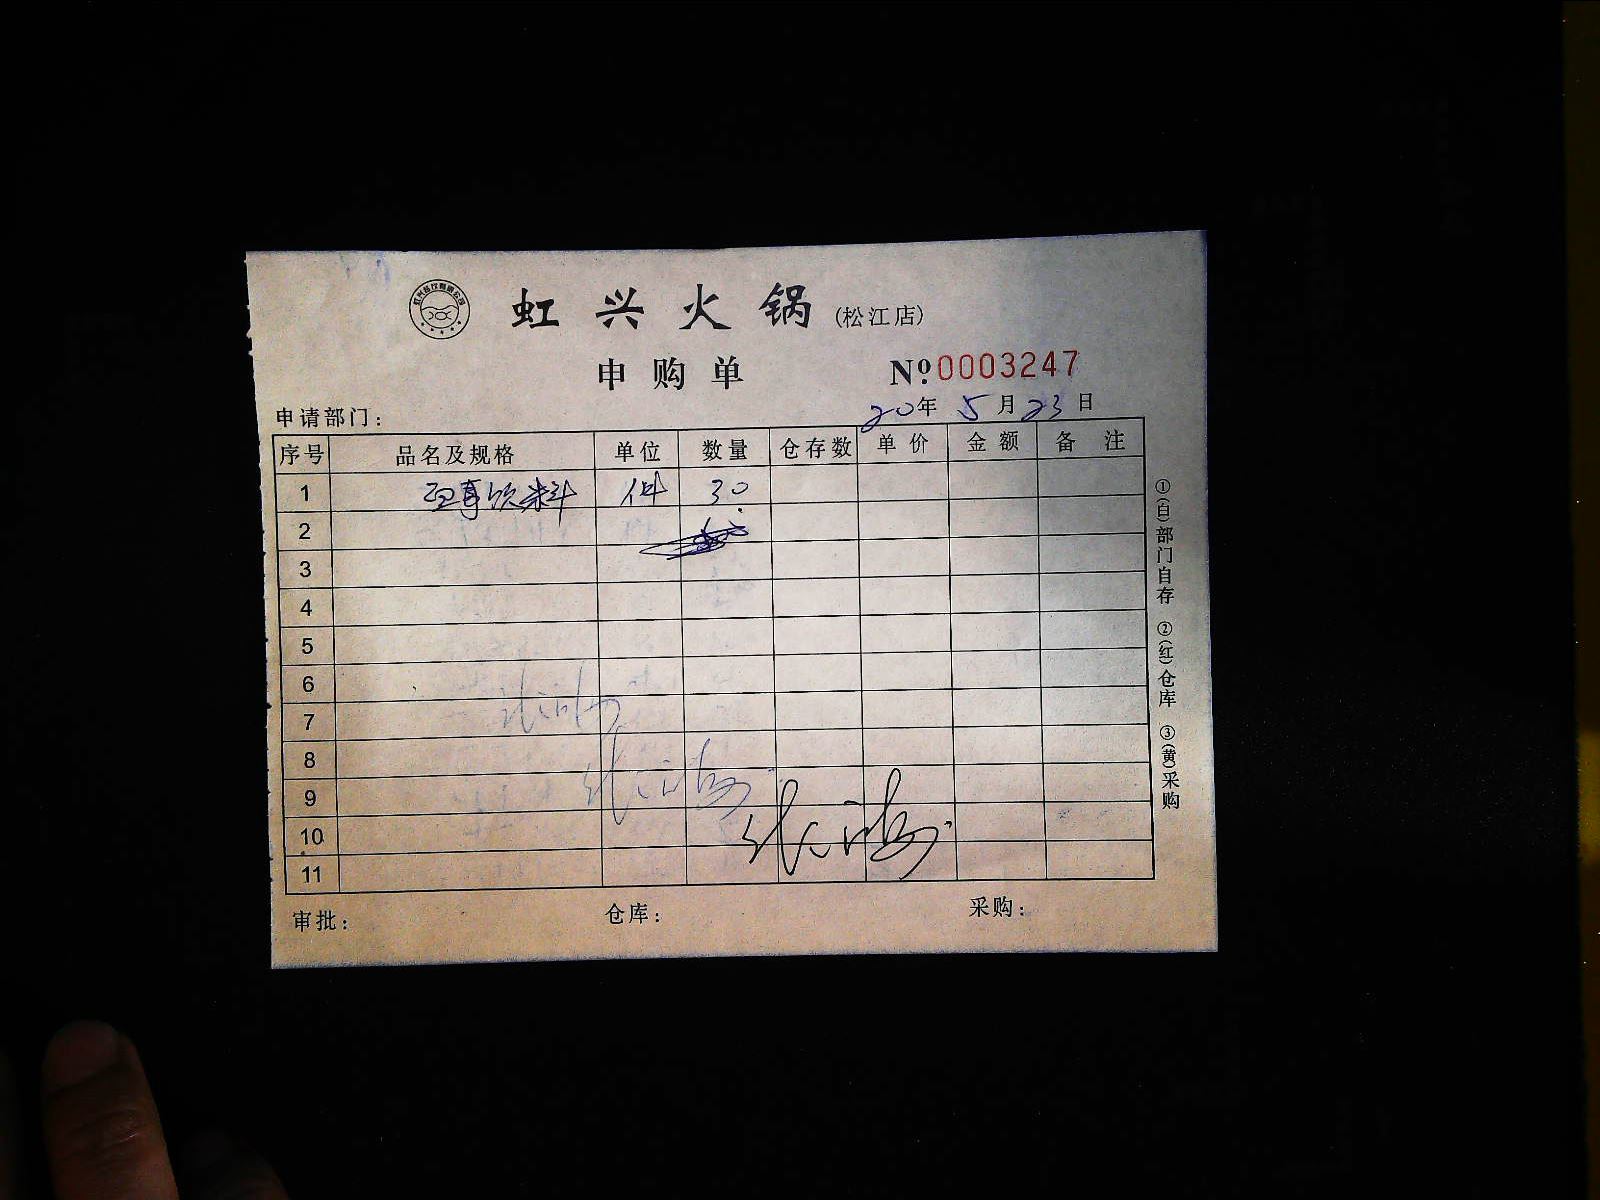 虹兴火锅(松江店)
申购单
Nº0003247
申请部门:
20年 5月23日
序号 品名及规格 单位 数量 仓存数 单价 金额 备注
1 饮料 件 30
2
3
4
5
6
7
8
9
10
11
审批: 仓库: 采购:
①(白)部门自存 ②(红)仓库 ③(黄)采购